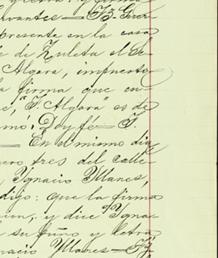 vantes — 
presente en la casa
de Zuleta el Se
Algara, impuesto
la firma que en
", "I. Algara" es de
mo: Doy fe —
— En el mismo dia
ero tres del calle
Ignacio Yllanes,
dijo: que la firma
cion, y dice "Ygnac
su puño y letra
nacio Yllanes —